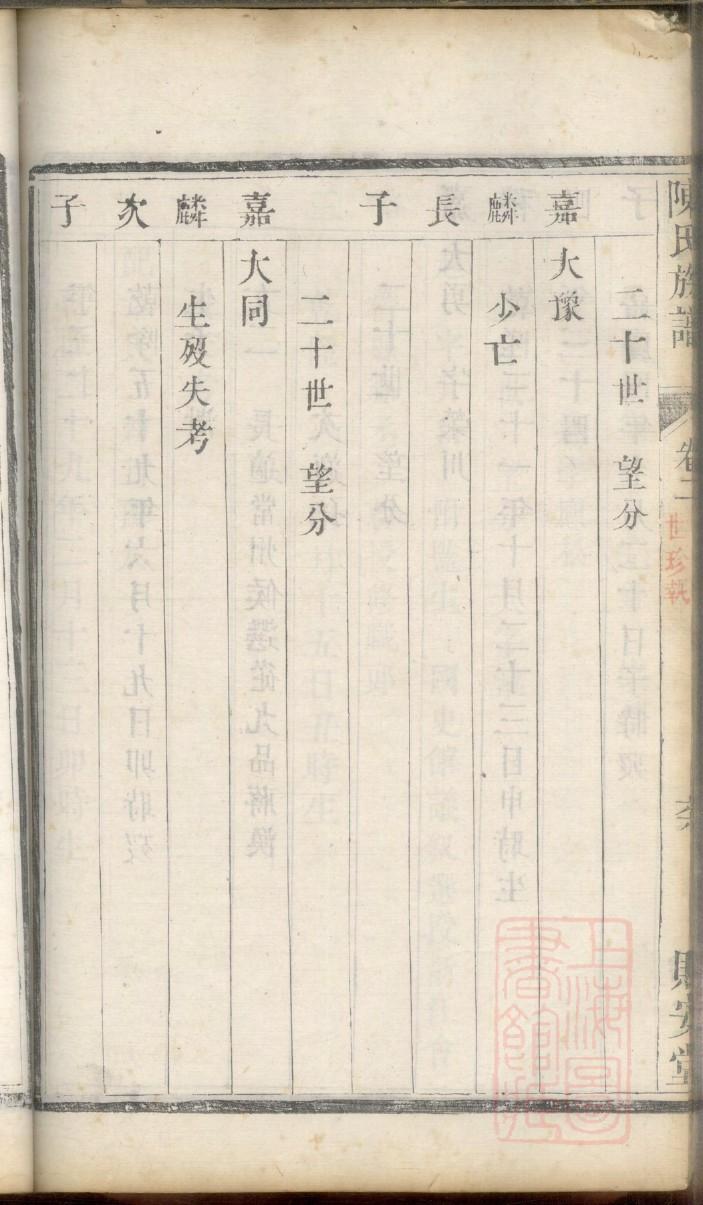 陳氏族譜
卷二
世珍執
貽安堂
二十世 望分
嘉麟長子
大豫
少亡
二十世 望分
嘉麟次子
大同
生殁失考
上海圖書館藏